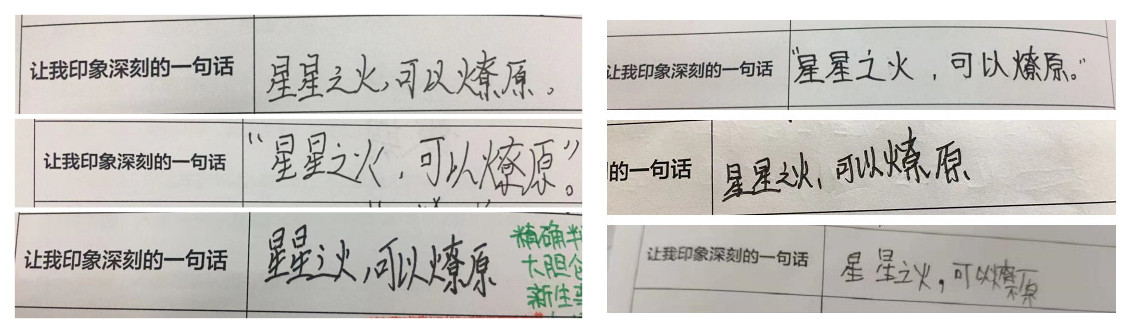 让我印象深刻的一句话 星星之火,可以燎原。
让我印象深刻的一句话 “星星之火,可以燎原”。
让我印象深刻的一句话 星星之火,可以燎原
精确判
大胆
新生
让我印象深刻的一句话 “星星之火,可以燎原。”
的一句话 星星之火,可以燎原
让我印象深刻的一句话 星星之火,可以燎原